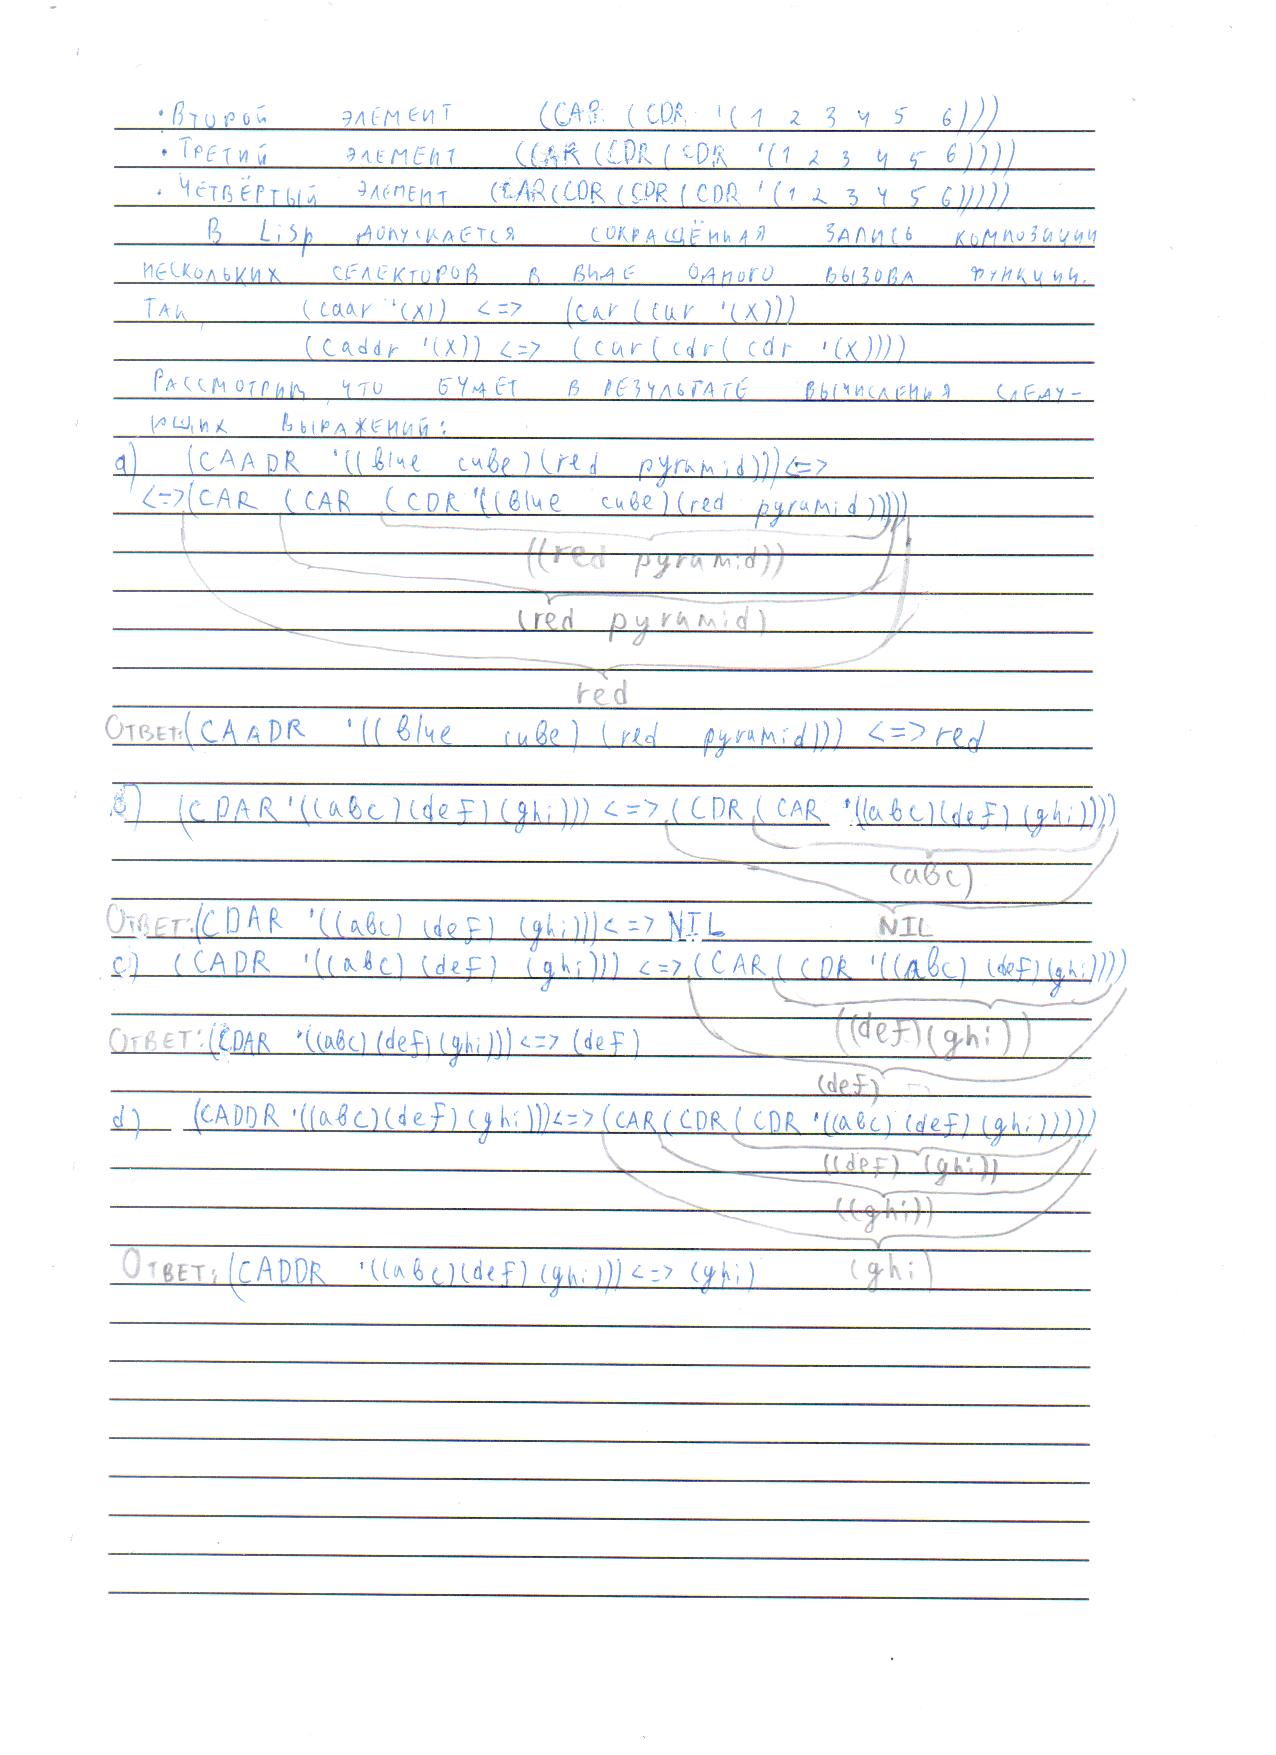 • Второй элемент (CAR (CDR '(1 2 3 4 5 6)))
• Третий элемент (CAR (CDR (CDR '(1 2 3 4 5 6))))
• Четвёртый элемент (CAR(CDR (CDR (CDR '(1 2 3 4 5 6)))))
В Lisp допускается сокращённая запись композиции
нескольких селекторов в виде одного вызова функции.
Так, (caar '(X)) <=> (car (car '(X)))
(caddr '(X)) <=> (car (cdr( cdr '(X))))
Рассмотрим, что будет в результате вычисления следу-
ющих выражений:
a) (CAADR '((blue cube)(red pyramid)))<=>
<=>(CAR (CAR (CDR '((blue cube)(red pyramid)))))
((red pyramid))
(red pyramid)
red
Ответ:(CAADR '((blue cube) (red pyramid))) <=> red
b) (CDAR '((abc)(def)(ghi))) <=> (CDR (CAR '((abc)(def)(ghi))))
(abc)
Ответ:(CDAR '((abc) (def) (ghi))) <=> NIL NIL
c) (CADR '((abc) (def) (ghi))) <=> (CAR ( CDR '((abc) (def)(ghi))))
((def)(ghi))
Ответ:(CDAR '((abc)(def)(ghi))) <=> (def)
(def)
d) (CADDR '((abc)(def)(ghi)))<=> (CAR(CDR (CDR '((abc)(def)(ghi)))))
((def) (ghi))
((ghi))
Ответ:(CADDR '((abc)(def)(ghi))) <=> (ghi) (ghi)